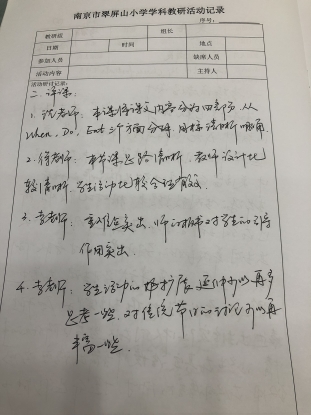 南京市翠屏山小学学科教研活动记录
序号:
教研组 组长
日期 时间 地点
参加人员 缺席人员
活动内容 主持人
活动研讨记录:
二、评课:
1. 老师: 本课将课文内容分为四部分,从
When, Do, Eat 三个方面分课,
2. 老师: 本节课思路清晰,教师设计比
较清晰,学生活动比较合理有效。
3. 李老师: 重难点突出,师的板书对学生的引导
作用突出.
4. 李老师: 学生活动的 扩展延伸可以再多
思考一些,对传统节日的讨论可以再
丰富一些.